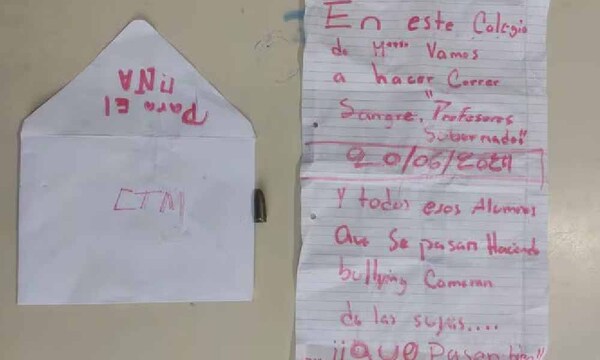 Para El
NNA
CTM
En este Colegio
de Mierda Vamos
a hacer Correr
Sangre. "Profesores
Subornados"
20/06/2024
Y todos esos Alumnos
Que Se pasan Haciendo
bullying Comeran
de las suyas....
¡¡Que Pasen bien"